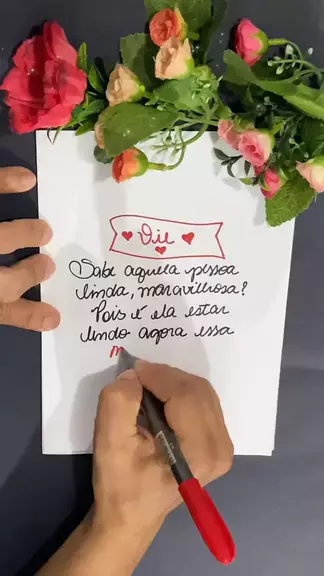 Oie
Sabe aquela pessoa
linda, maravilhosa?
Pois é ela estar
lendo agora essa
m